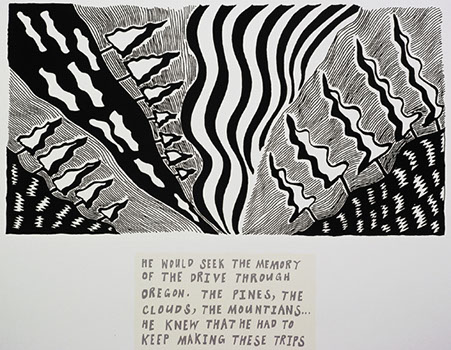 HE WOULD SEEK THE MEMORY
OF THE DRIVE THROUGH
OREGON. THE PINES, THE
CLOUDS, THE MOUNTIANS...
HE KNEW THAT HE HAD TO
KEEP MAKING THESE TRIPS